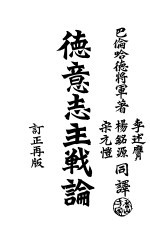 巴倫哈德將軍著
李述膺
楊銘源
宋元愷
同譯
德意志主戰論
訂正再版